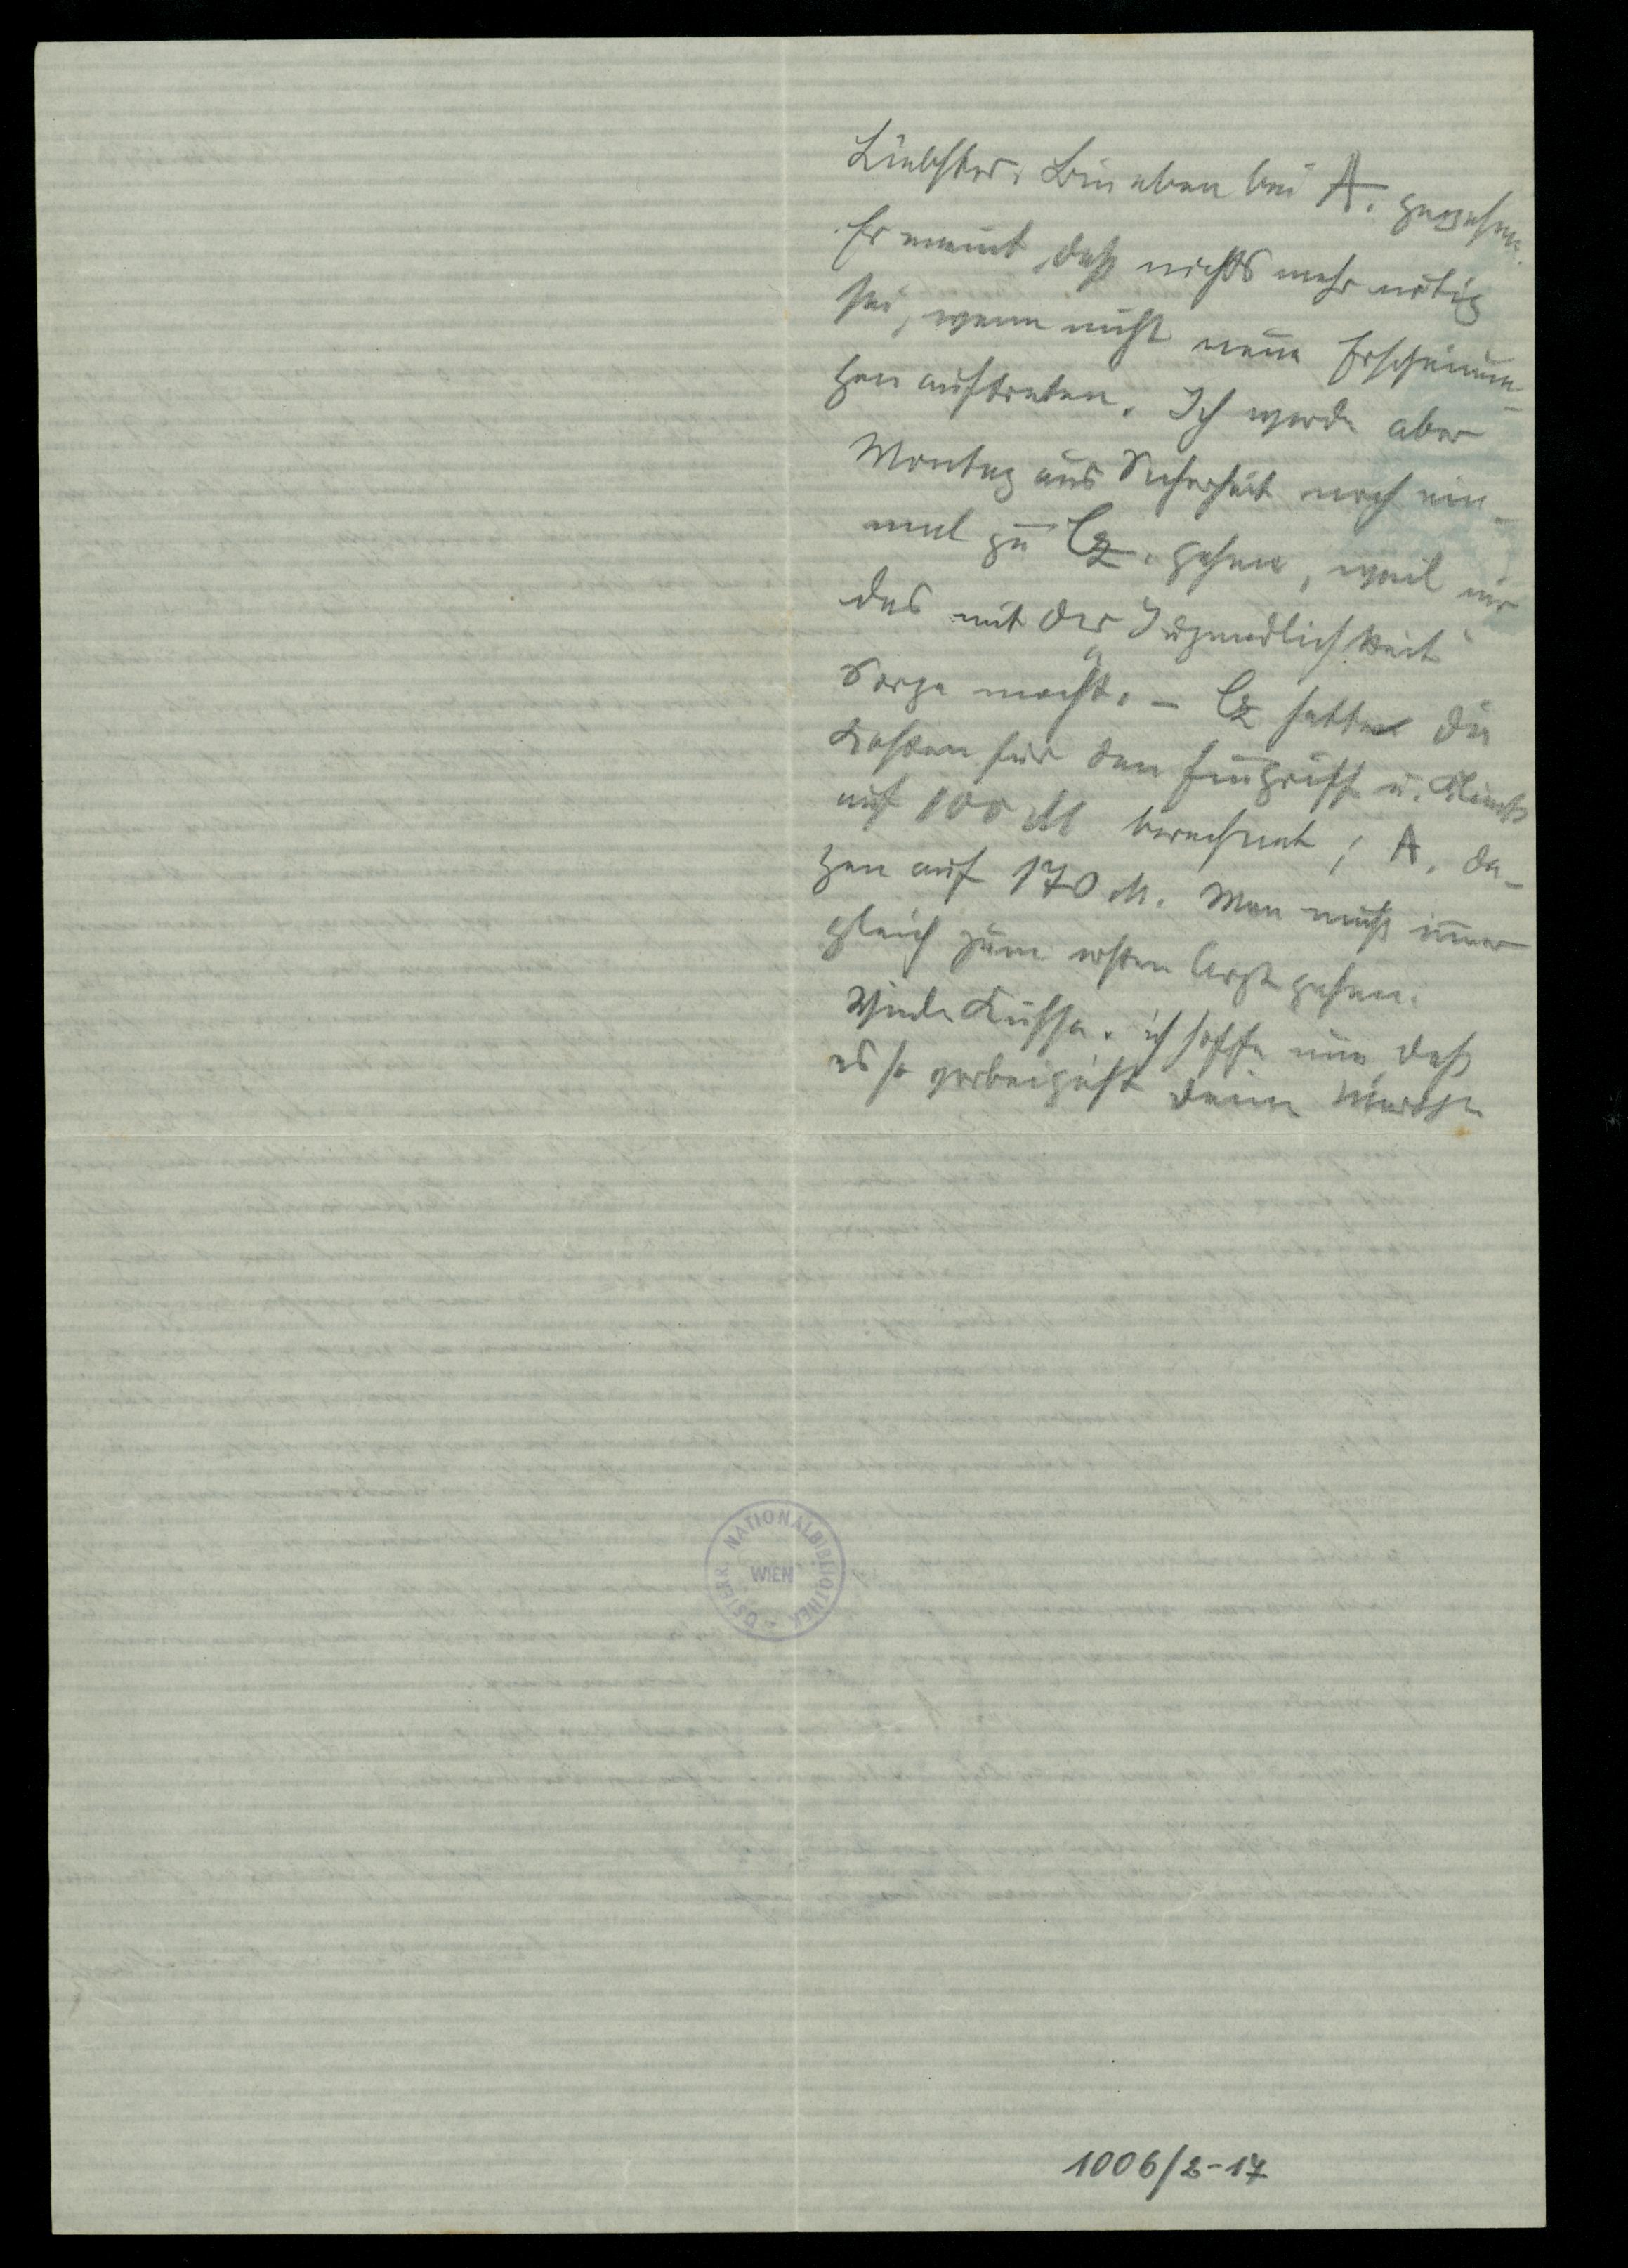 Liebster. Bin eben bei A. gewesen.
Er meint, daß nichts mehr nötig
sei, wenn nicht neue Erscheinun-
gen auftreten. Ich werde aber
Montag aus Sicherheit noch ein-
mal zu Cz. gehen, weil mir
das mit der Jugendlichkeit
Sorge macht. – Cz hatte die
Kosten für den Eingriff u. Klinik
auf 100 M berechnet; A. da-
gen auf 170 M. Man muß immer
gleich zum ersten Arzt gehen.
Viele Küsse. ich hoffe nun, daß
es so vorbeigeht Deine Martha
ÖSTERR. NATIONALBIBLIOTHEK
WIEN
1006/2-17